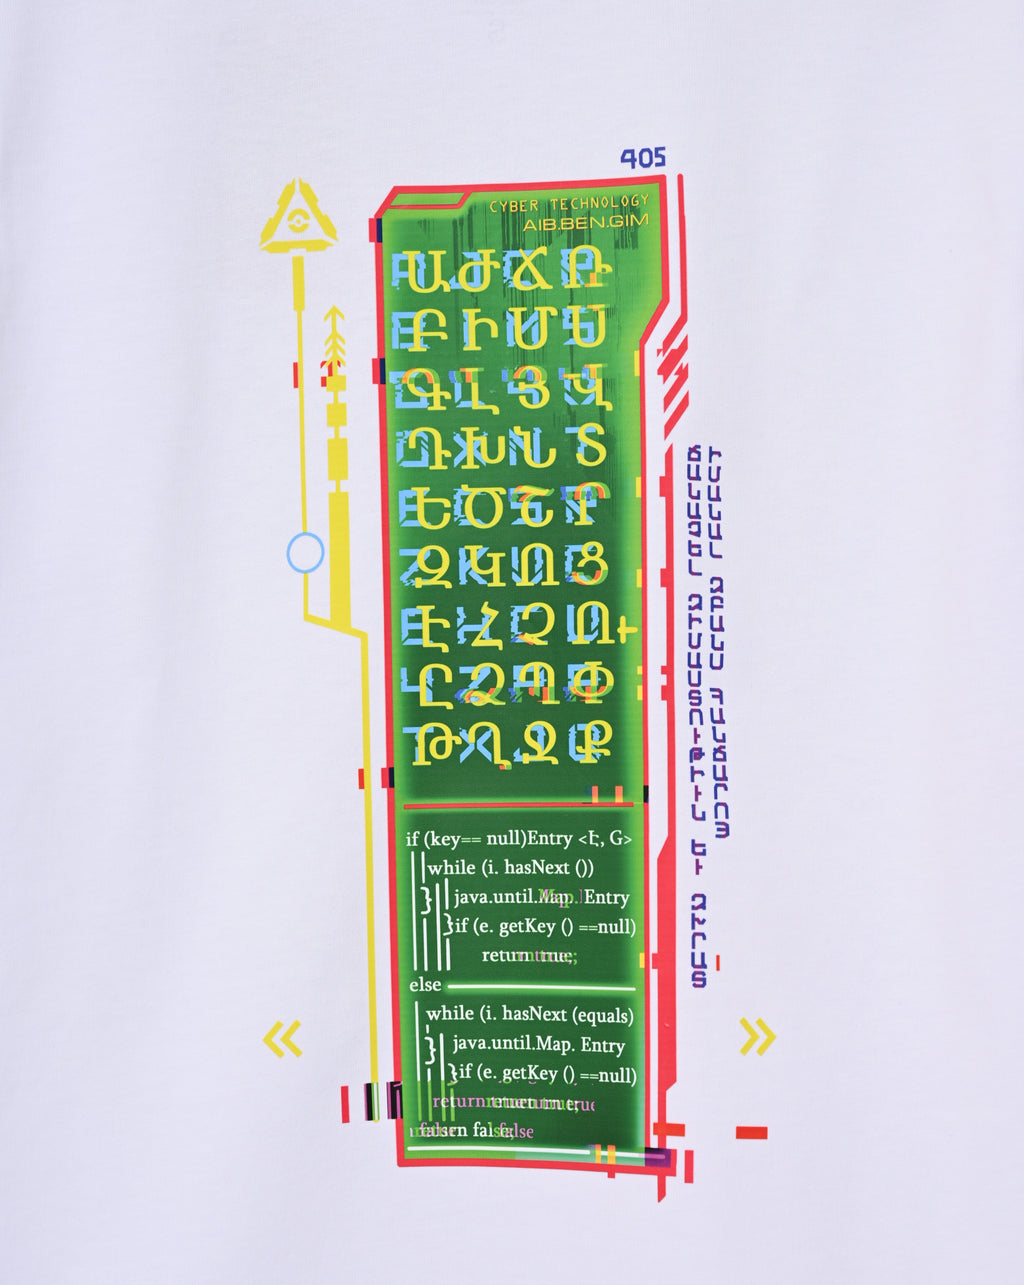 405
CYBER TECHNOLOGY
AIB.BEN.GIM
Ա Ժ Ճ Ռ
Բ Ի Մ Ս
Գ Լ Յ Վ
Դ Խ Ն Տ
Ե Ծ Շ Ր
Զ Կ Ո Ց
Է Հ Չ Ու
Ը Ձ Պ Փ
Թ Ղ Ջ Ք
if (key== null)Entry <Է, G>
while (i. hasNext ())
} java.until.Map. Entry
}if (e. getKey () ==null)
return true;
else
while (i. hasNext (equals)
} java.until.Map. Entry
}if (e. getKey () ==null)
return true
false
ՃԱՆԱՉԵԼ ԶԻՄԱՍՏՈՒԹԻՒՆ ԵՒ ԶԽՐԱՏ
ԻՄԱՆԱԼ ԶԲԱՆՍ ՀԱՆՃԱՐՈՅ